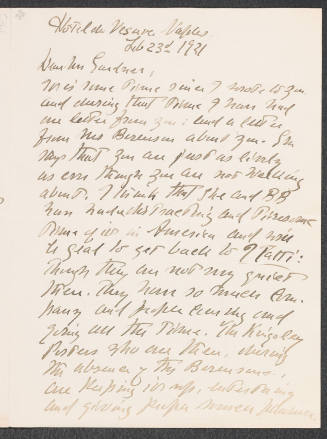 Hotel du Vesuve Naples
Feb 23rd 1921
Dear Mrs Gardner,
It is some time since I wrote to you
and during that time I have had
one letter from you: and a letter
from Mrs Berenson about you. She
says that you are just as lively
as ever though you are not walking
about. I think that she and BB
have had a distracting and tiresome
time of it in America and will
be glad to get back to I Tatti:
though they are not very quiet
there. They have so much com-
pany and people coming and
going all the time. The Kingsley
Porters who are there, during
the absence of the Berensons,
are keeping it up, entertaining
and giving people